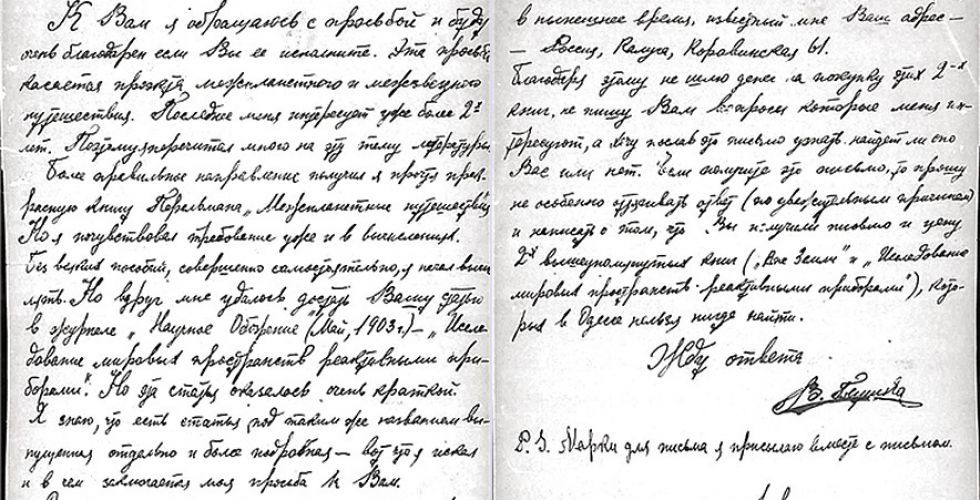 К Вам я обращаюсь с просьбой и буду
очень благодарен если Вы ее исполните. Эта просьба
касается проэкта межпланетного и межзвездного
путешествия. Последнее меня интересует уже более 2х
лет. Поэтому я перечитал много на эту тему литературы.
Более правильное направление получил я прочтя прек-
расную книгу Перельмана „Межпланетные путешествия“
Но я почувствовал требование уже и в вычислениях.
Без всяких пособий, совершенно самостоятельно, я начал вычи-
слять. Но вдруг мне удалось достать Вашу статью
в журнале „Научное Обозрение“ (Май, 1903 г.) – „Иссле-
дование мировых пространств реактивными при-
борами“. Но эта статья оказалось очень краткой.
Я знаю, что есть статья под таким же названием вы-
пущенная отдельно и более подробная – вот что я искал
и в чем заключается моя просьба к Вам.
в нынешнее время, известный мне Ваш адрес –
– Россия, Калуга, Коравинская 61.
Благодаря этому не шлю денег на покупку этих 2-х
книг, не пишу Вам вопросы которые меня ин-
тересуют, а хочу послав это письмо узнать найдет ли оно
Вас или нет. Если получите это письмо, то прошу
не особенно задерживать ответ (по уважительным причинам)
и написать о том, что Вы получили письмо и цену
2х вышеупомянутых книг („Вне Земли“ и „Иследование
мировых пространств реактивными приборами“), кото-
рых в Одессе нельзя нигде найти.
Жду ответа
P. S. Марки для письма я присылаю вместе с письмом.